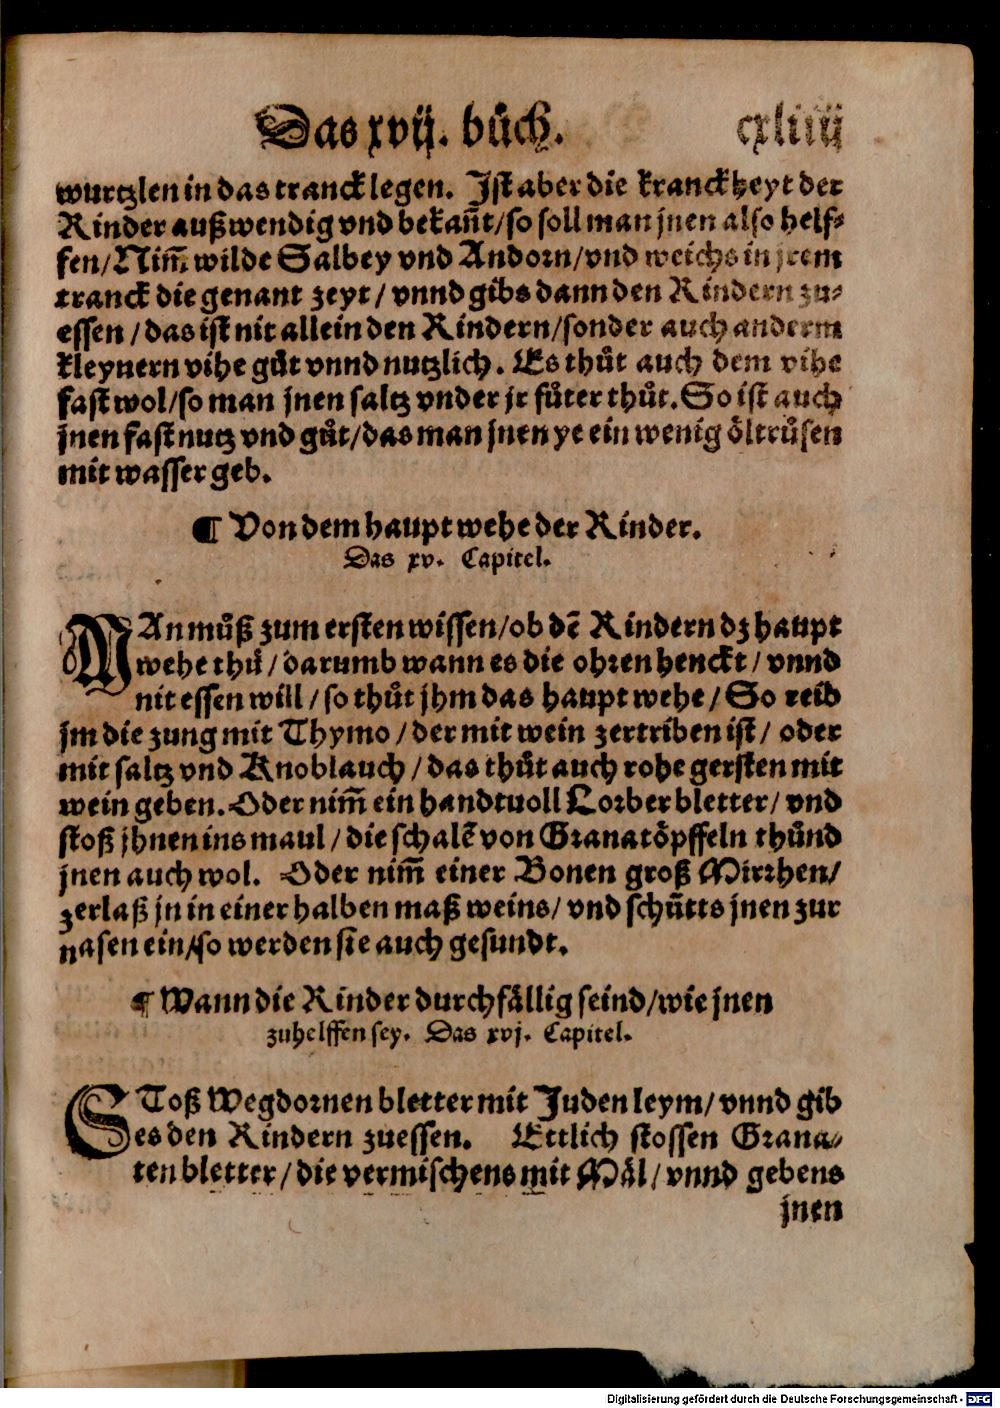 Das xvij. bůch. cxliiij
wurtzlen in das tranck legen. Jst aber die kranckheyt der
Rinder außwendig vnd bekañt/so soll man jnen also helf⸗
fen/Nim̃ wilde Salbey vnd Andorn/vnd weichs in jrem
tranck die genant zeyt/ vnnd gibs dann den Rindern zu⸗
essen/das ist nit allein den Rindern/sonder auch anderm
kleynern vihe gůt vnnd nutzlich. Es thůt auch dem vihe
fast wol/so man jnen saltz vnder jr fůter thůt. So ist auch
jnen fast nutz vnd gůt/das man jnen ye ein wenig ŏltrůsen
mit wasser geb.
¶ Von dem hauptwehe der Rinder.
Das xv. Capitel.
MAn můß zum ersten wissen/ob dẽ Rindern dz haupt
wehe thů/darumb wann es die ohren henckt/vnnd
nit essen will/so thůt jhm das haupt wehe/So reib
jm die zung mit Thymo/der mit wein zertriben ist/ oder
mit saltz vnd Knoblauch/das thůt auch rohe gersten mit
wein geben. Oder nim̃ ein handtvoll Lorberbletter/vnd
stoß jhnen ins maul/die schalẽ von Granatöpffeln thůnd
jnen auch wol. Oder nim̃ einer Bonen groß Mirrhen/
zerlaß jn in einer halben maß weins/vnd schütts jnen zur
nasen ein/so werden sie auch gesundt.
¶ Wann die Rinder durchfällig seind/wie jnen
zuhelffen sey. Das xvj. Capitel.
SToß Wegdornen bletter mit Juden leym/vnnd gib
es den Rindern zuessen. Ettlich stossen Grana⸗
tenbletter/die vermischens mit Mäl/vnnd gebens
jnen
Digitalisierung gefördert durch die Deutsche Forschungsgemeinschaft - DFG